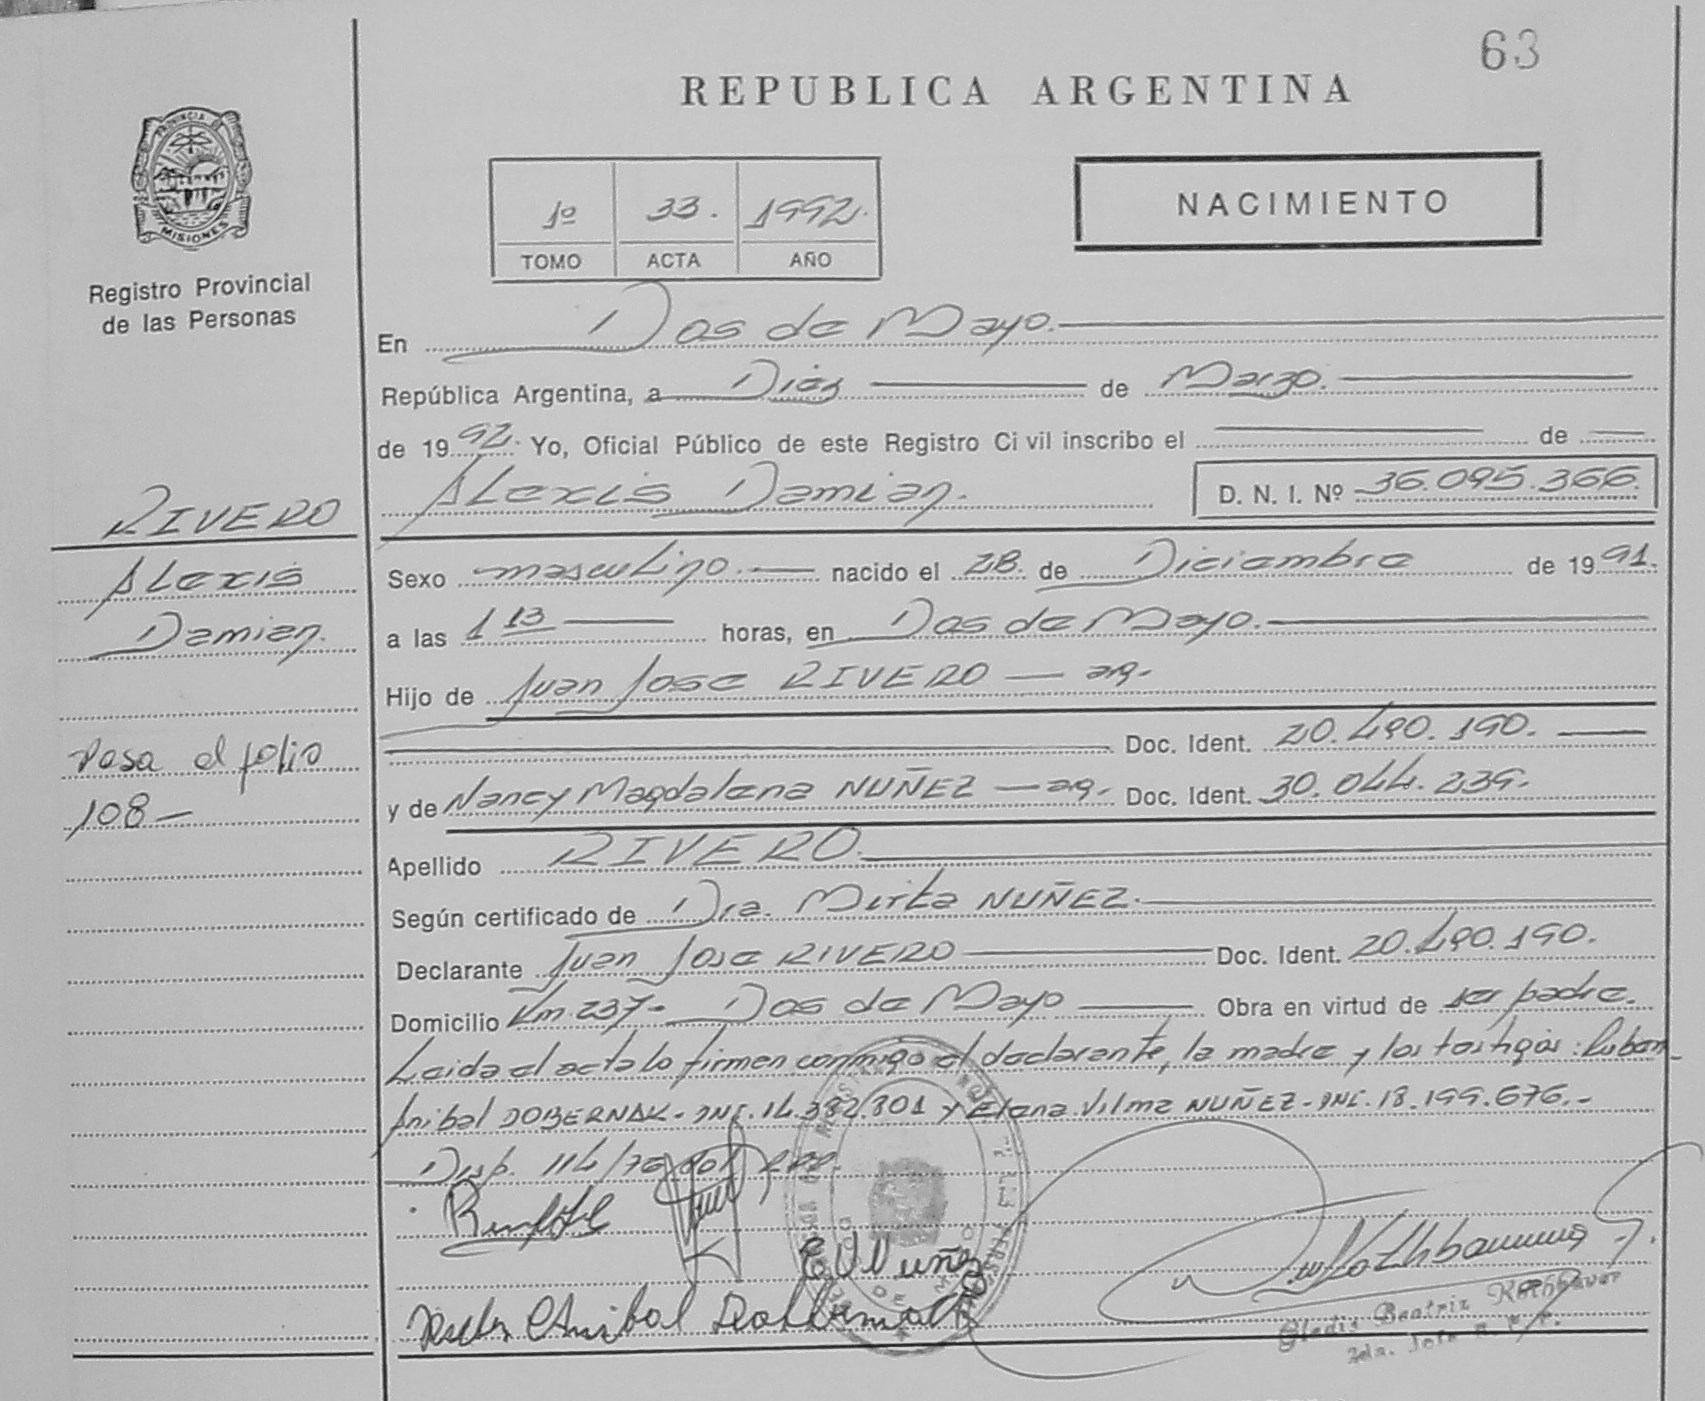 63
REPUBLICA ARGENTINA
PROVINCIA DE
MISIONES
Registro Provincial
de las Personas
1º 33. 1992.
TOMO ACTA AÑO
NACIMIENTO
En Dos de Mayo.
República Argentina, a Diez de Marzo.
de 1992. Yo, Oficial Público de este Registro Civil inscribo el de
Alexis Damian. D. N. I. Nº 36.095.366.
RIVERO
Alexis
Damian.
Pasa al folio
108-
Sexo masculino. nacido el 28. de Diciembre de 1991.
a las 1 13 horas, en Dos de Mayo.
Hijo de Juan Jose RIVERO — arg.
Doc. Ident. 20.490.190.
y de Nancy Magdalena NUÑEZ — arg. Doc. Ident. 30.044.239.
Apellido RIVERO.
Según certificado de Dra. Mirta NUÑEZ.
Declarante Juan Jose RIVERO Doc. Ident. 20.490.190.
Domicilio Km. 237- Dos de Mayo Obra en virtud de ser padre.
Leida el acta lo firmen conmigo el declarante, la madre y los testigos: Ruben
Anibal DOBERNAK- DNI. 14.382.801 y Elena Vilma NUÑEZ- DNI. 18.199.676.-
Disp. 114/70 del RPP.
E V Nuñez
Anibal
Gladis Beatriz
2da.